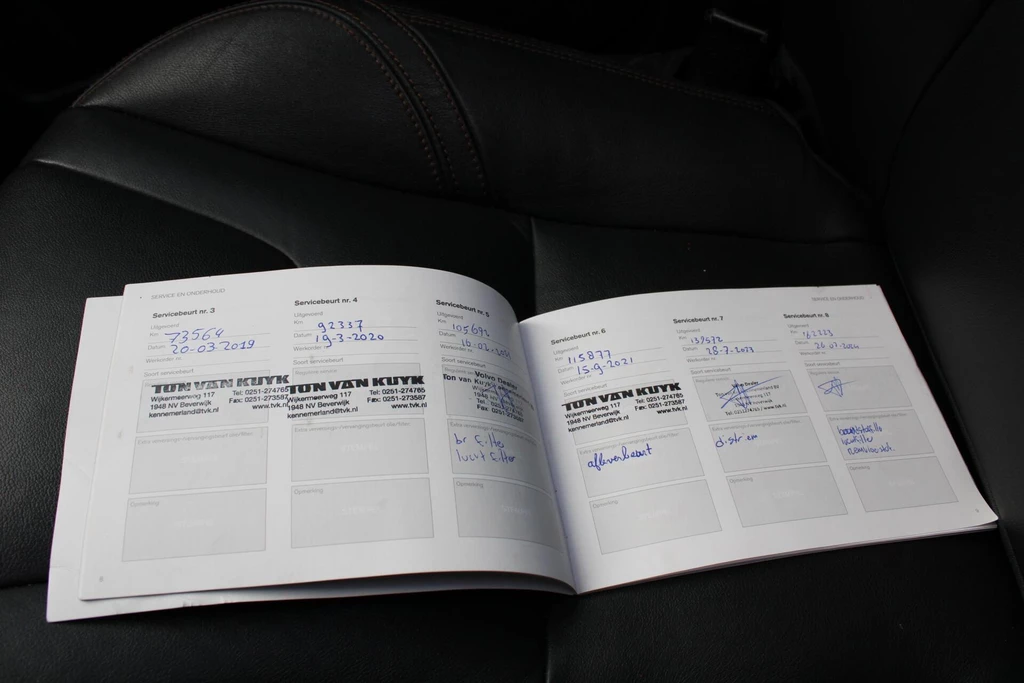 SERVICE EN ONDERHOUD
Servicebeurt nr. 3
Uitgevoerd
Km. 73564
Datum 20-03-2019
Werkorder nr.
Soort servicebeurt
TON VAN KUYK
Wijkermeerweg 117 Tel: 0251-274765
1948 NV Beverwijk Fax: 0251-273587
kennemerland@tvk.nl www.tvk.nl
Opmerking
Servicebeurt nr. 4
Uitgevoerd
Km. 92337
Datum 19-3-2020
Werkorder nr.
Soort servicebeurt
TON VAN KUYK
Wijkermeerweg 117 Tel: 0251-274765
1948 NV Beverwijk Fax: 0251-273587
kennemerland@tvk.nl www.tvk.nl
Opmerking
Servicebeurt nr. 5
Uitgevoerd
Km. 105692
Datum
Werkorder nr.
Soort servicebeurt
Volvo Dealer
Ton van Kuyk
br filter
lucht filter
Opmerking
8
SERVICE EN ONDERHOUD
Servicebeurt nr. 6
Uitgevoerd
Km. 115877
Datum 15-9-2021
Werkorder nr.
Soort servicebeurt
TON VAN KUYK
Wijkermeerweg 117 Tel: 0251-274765
1948 NV Beverwijk Fax: 0251-273587
kennemerland@tvk.nl www.tvk.nl
afleverbeurt
Opmerking
Servicebeurt nr. 7
Uitgevoerd
Km. 139572
Datum 28-7-2023
Werkorder nr.
Soort servicebeurt
Dealer
distr riem
Opmerking
Servicebeurt nr. 8
Uitgevoerd
Km.
Datum 26-07-2024
Werkorder nr.
Soort servicebeurt
Opmerking